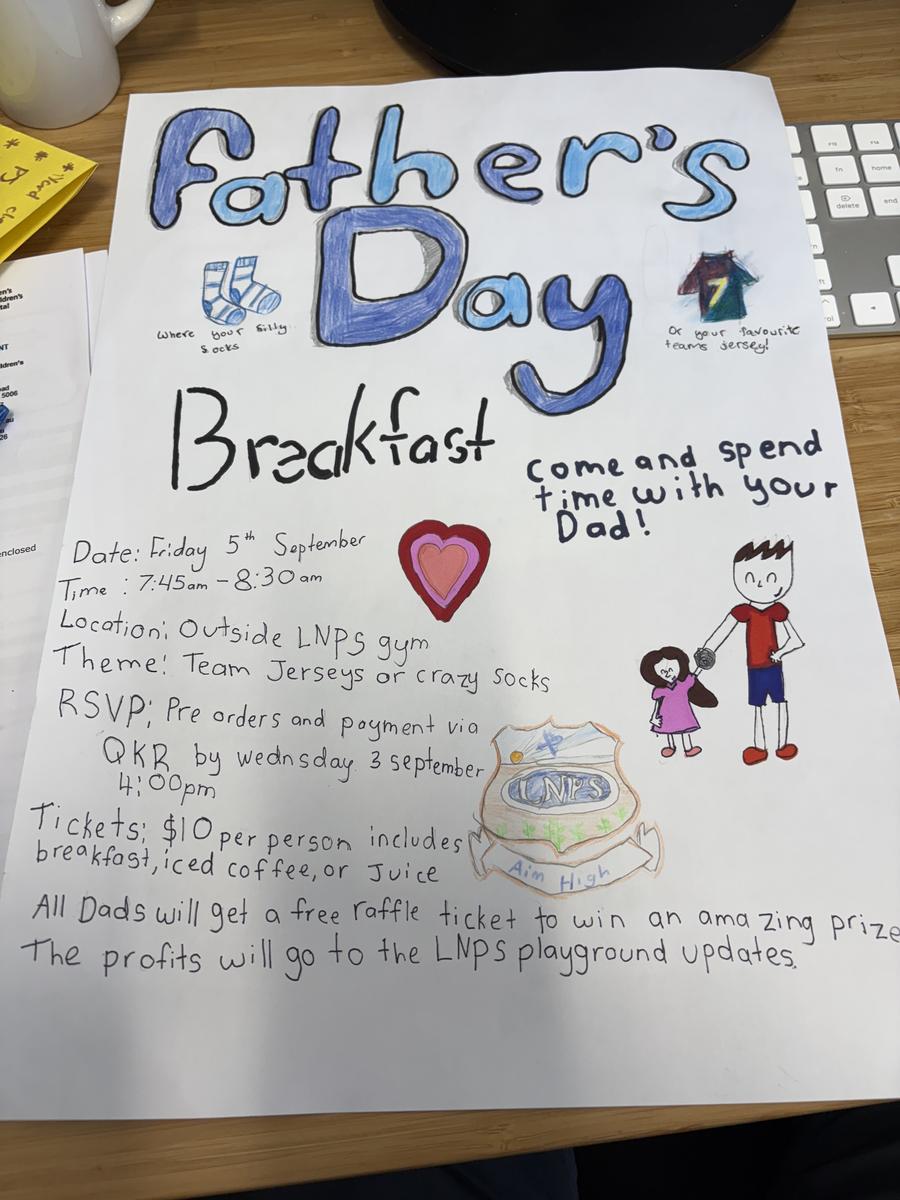 Father's
Day
Where your silly
socks
Or your favourite
teams jersey!
Breakfast
Come and spend
time with your
Dad!
Date: Friday 5th September
Time : 7:45am - 8:30am
Location: Outside LNPS gym
Theme! Team Jerseys or crazy socks
RSVP; Pre orders and payment via
QKR by wednsday 3 september
4:00pm
Tickets; $10 per person includes
breakfast, iced coffee, or Juice
LNPS
Aim High
All Dads will get a free raffle ticket to win an amazing prize
The profits will go to the LNPS playground updates.
7
enclosed
5006
26
fn
home
delete
end